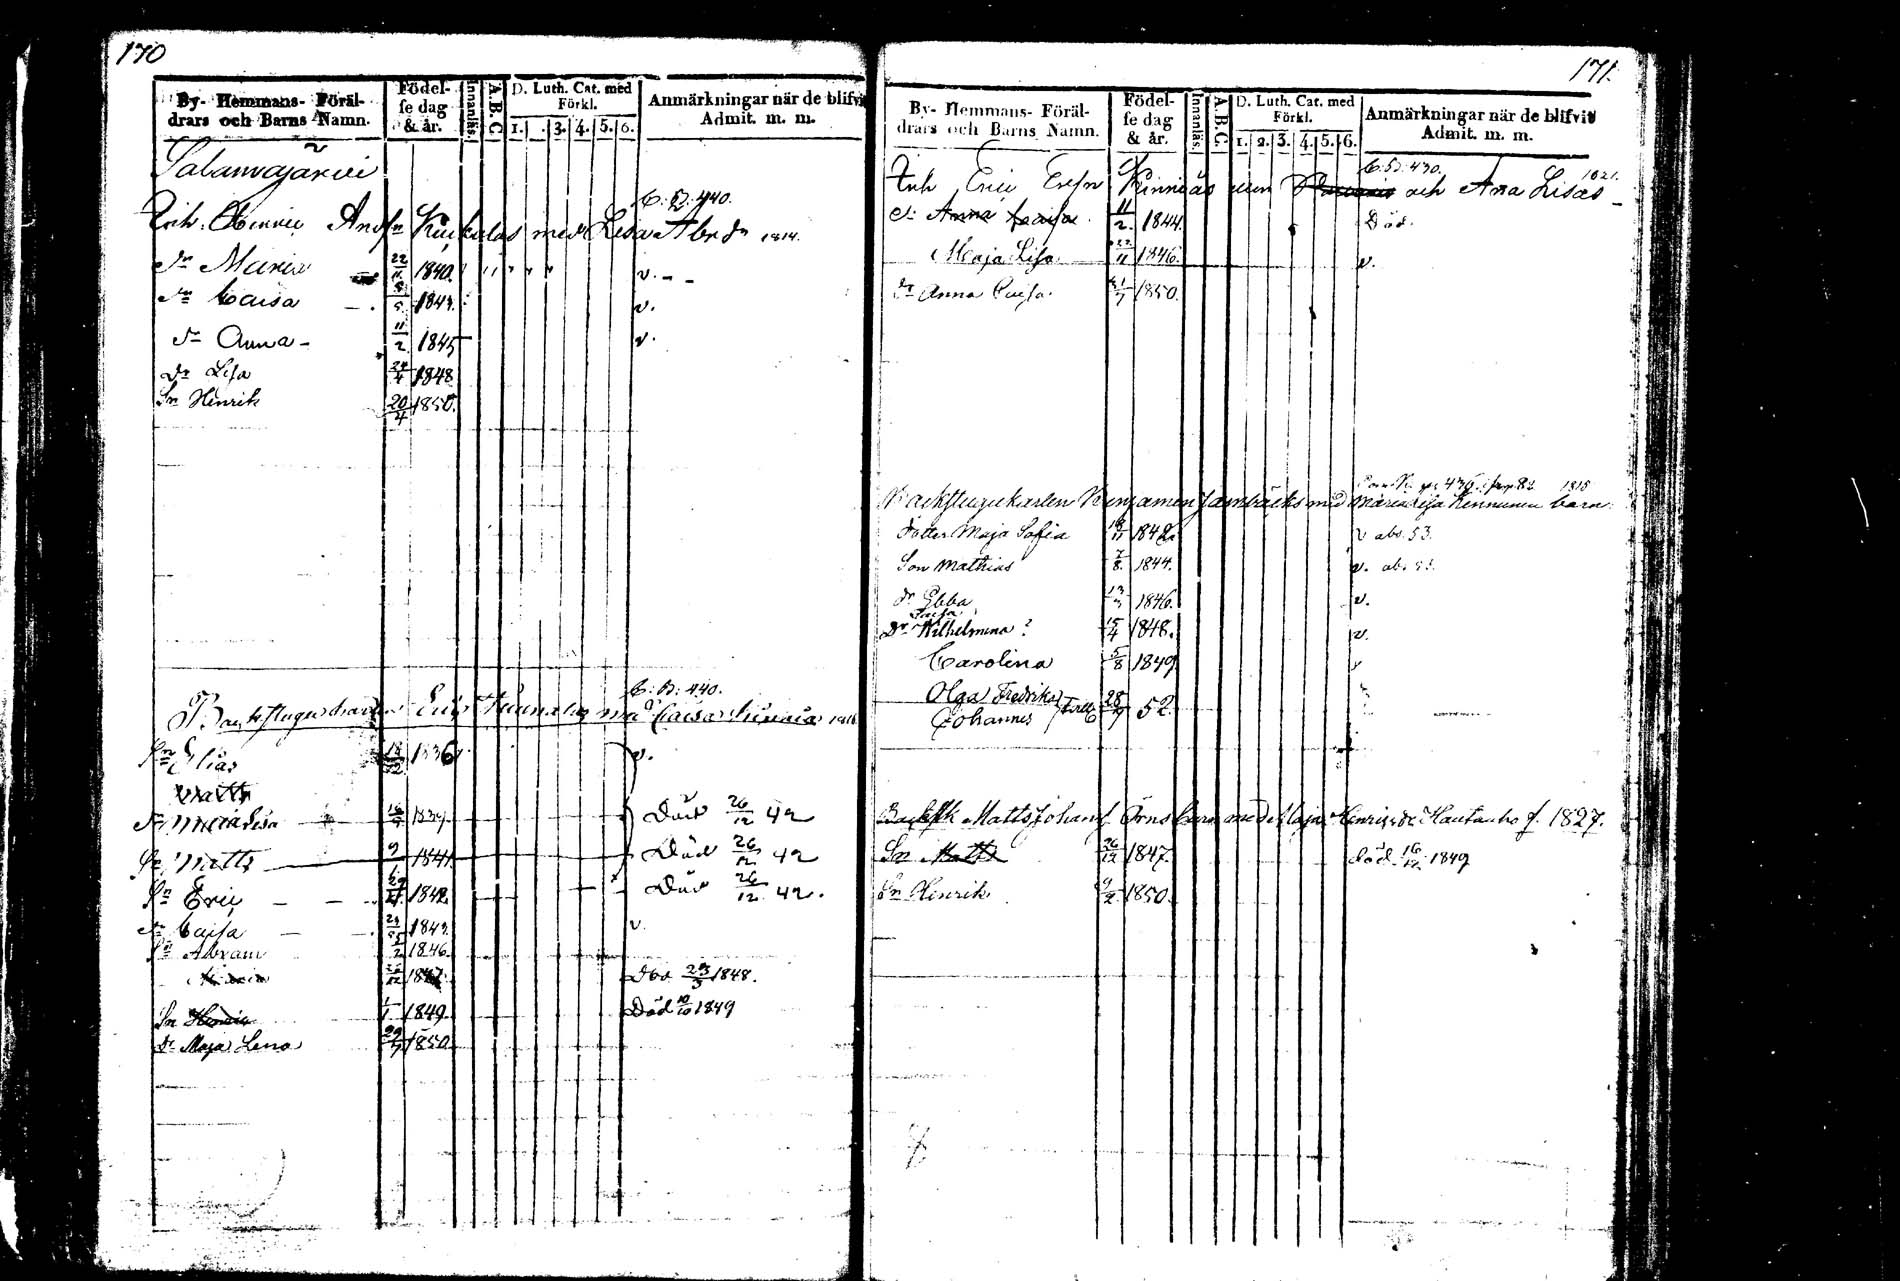 170
By- Hemmans- Föräl-
drars och Barns Namn.
Födel-
se dag
& år.
Innanläs.
A.B.C
D. Luth. Cat. med
Förkl.
1. . 3. 4. 5. 6.
Anmärkningar när de blifvit
Admit. m. m.
Salamajärvi
C: B: 440.
Henric And:sn med Lisa Abr dr 1814.
dr Maria 22/11 1840. v.
dr Caisa 8/5 1843. v.
dr Anna 11/2 1845 v.
dr Lisa 24/4 1848
Sn Henrik 20/4 1850.
C: B: 440.
Eric med Caisa
Sn Elias 1836 v.
Matts
dr Maria Lisa 1839 Död 26/12 42
Sn Matts 9/1 1841. Död 26/12 42
Sn Eric 1842. Död 26/12 42.
dr Caisa 1843. v
Sn Abram 5/2 1846.
1847. Död 23/3 1848.
Sn Henric 1/1 1849 Död 10/10 1849
Dr Maja Lena 29/7 1850
171.
By- Hemmans- Föräl-
drars och Barns Namn.
Födel-
se dag
& år.
Innanläs.
A.B.C
D. Luth. Cat. med
Förkl.
1. 2. 3. 4. 5. 6.
Anmärkningar när de blifvit
Admit. m. m.
C: B: 430. 1821.
Eric Ersn Kinnuäs och Ana Lisas
dr Anna Caisa. 11/2. 1844. Död.
Maja Lisa 22/11 1846. v.
dr Anna Caisa. 31/7 1850.
1815
Backstugukarlen Benjamen Jambäcks med Maria Lisa Kinnunen barn.
Dotter Maja Sofia 18/11 1842. v abs. 53.
Son Mathias 7/8. 1844. v. abs 53.
dr Ebba 1846. v.
Caisa
Dr Wilhelmina? 15/4 1848. v.
Carolina 5/8 1849 v
Olga Fredrika
Johannes 28/9 52.
Matts Johans Örns barn med Maja Henricsdr Hautaaho f. 1827.
Sn Matts 26/12 1847. död 16/12 1849
Sn Henrik 9/2. 1850.